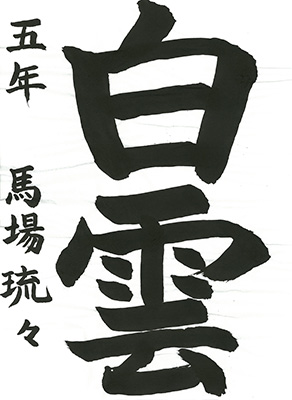 白雲
五年 馬場琉々